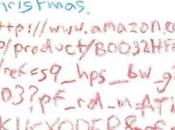 Christmas.
ttp://www.amazon.co
p/product/B0032HF
ref=s9_hps_bw_g
03?pf_rd_m=ATV